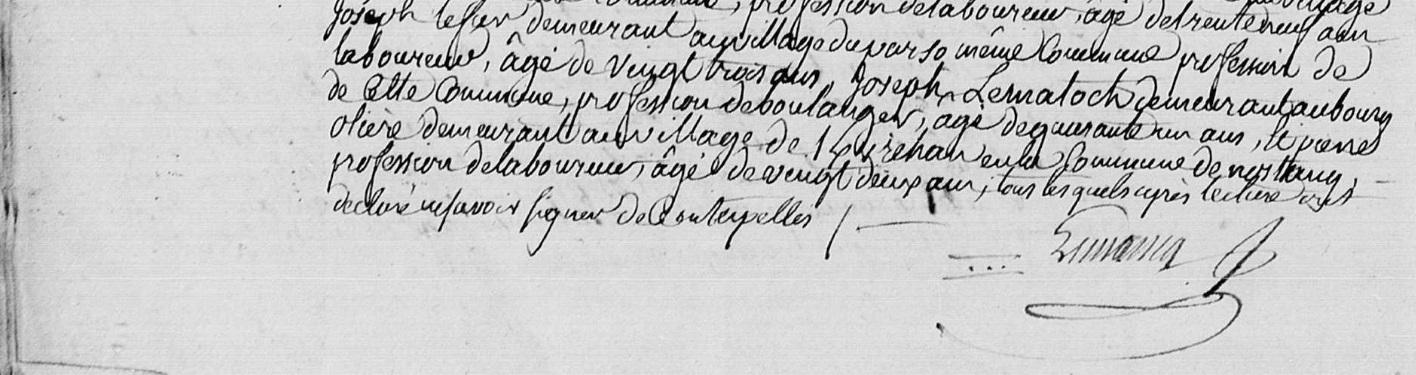 profession de laboureur, âgé de trente neuf ans
Joseph demeurant au village du même Commune profession de
laboureur, âgé de vingt trois ans, Joseph Lematoch demeurant au bourg
de Cette Commune, profession de boulanger, âgé de quarante un ans, et pierre
oliere demeurant au village de en la Commune de nostang,
profession de laboureur, âgé de vingt deux ans, tous lesquels après lecture ont
declaré ne savoir signer de interpellés /